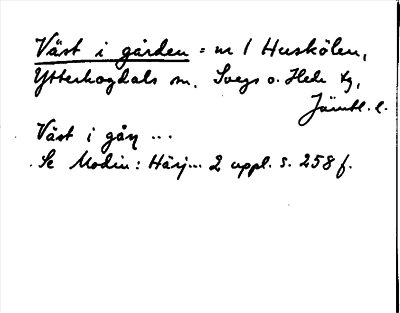 Väst i gården = nr 1 Huskölen,
Ytterhogdals sn. Svegs o. Hede tg,
Jämtl. l.
Väst i gåŋ ...
Se Modin: Härj... 2 uppl. s. 258 f.